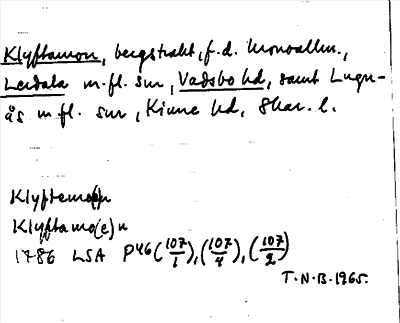 Klyftamon, bergstrakt, f.d. kronoallm.,
Lerdala m.fl. snr, Vadsbo hd, samt Lugn-
ås m.fl. snr, Kinne hd, Skar. l.
Klyftemo(e)n
Klyftamo(e)n
1786 LSA P46 (107/1), (107/4), (107/2)
T.N.B. 1965.